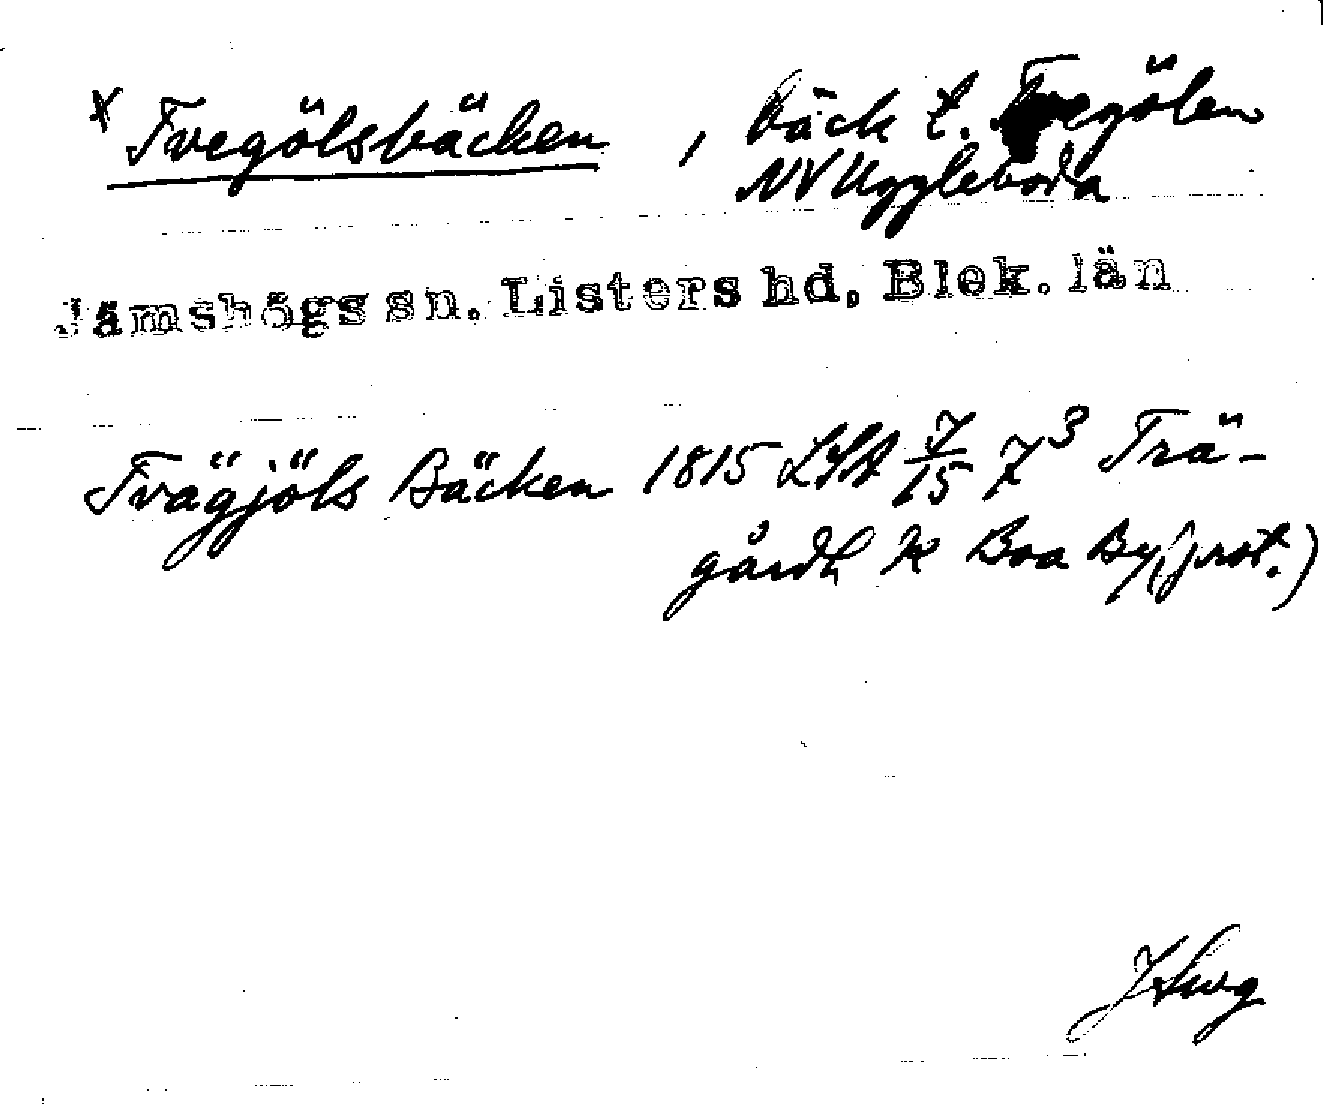 x Tvegölsbäcken, bäck t. Tvegölen
NV Uggleboda
Jämshögs sn. Listers hd. Blek. län
Tvägjöls Bäcken 1815 LSA 7/15 7³ Trä-
gårdh k Boa By (prot.)